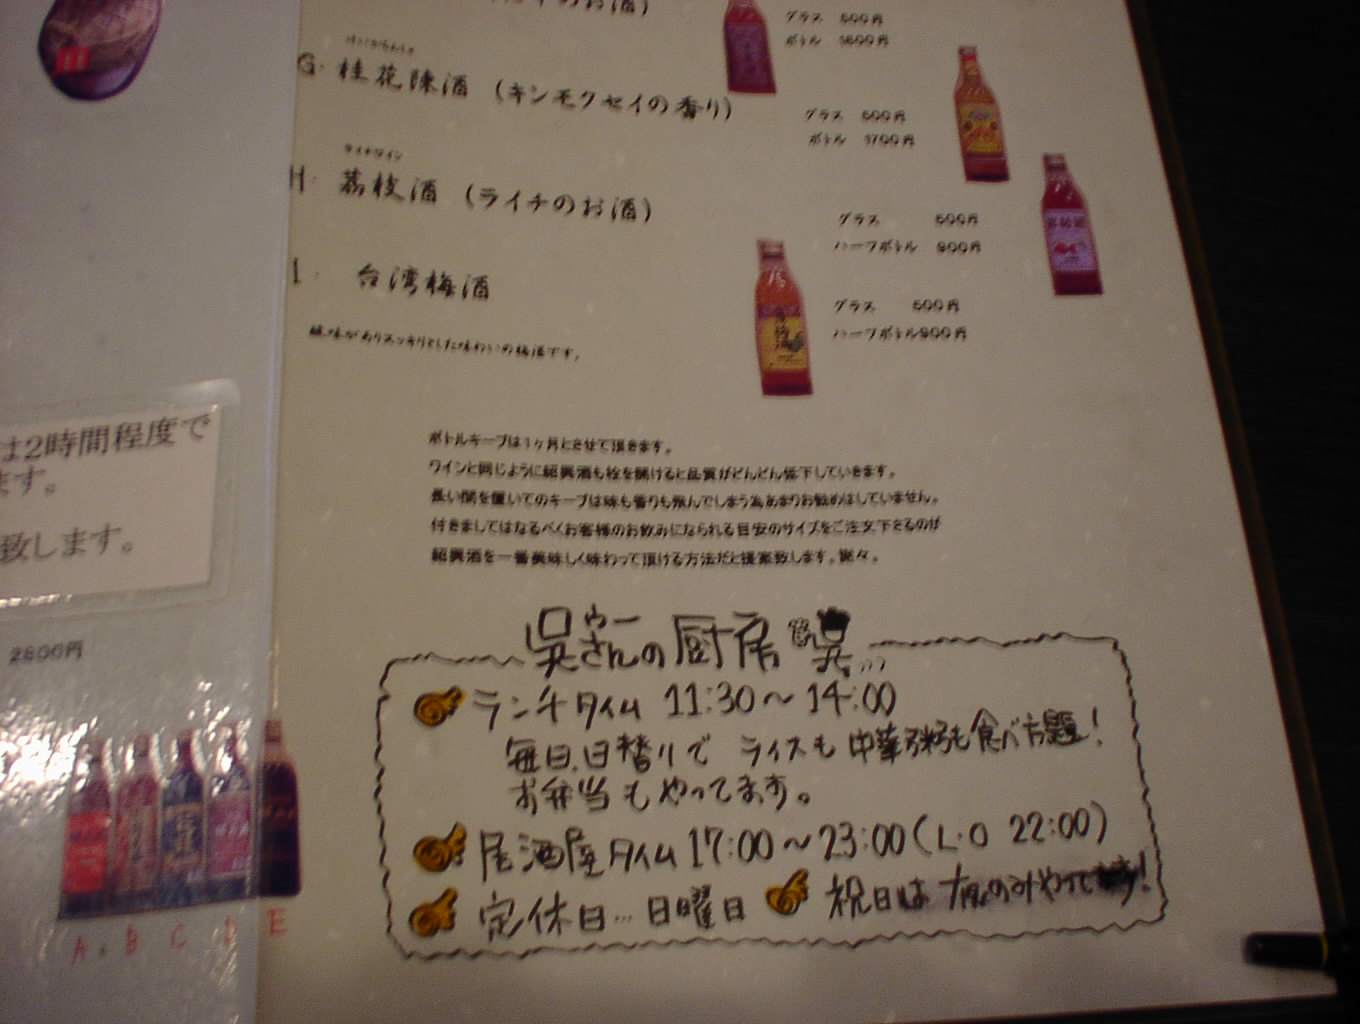 のお酒)
グラス 500円
ボトル 1800円
G. 桂花陳酒 (キンモクセイの香り)
グラス 500円
ボトル 1700円
ライチワイン
H. 茘枝酒 (ライチのお酒)
グラス 500円
ハーフボトル 900円
I. 台湾梅酒
グラス 500円
ハーフボトル900円
酸味がありスッキリとした味わいの梅酒です。
は2時間程度で
ます。
致します。
ボトルキープは1ヶ月とさせて頂きます。
ワインと同じように紹興酒も栓を開けると品質がどんどん低下していきます。
長い間を置いてのキープは味も香りも飛んでしまう為あまりお勧めはしていません。
付きましてはなるべくお客様のお飲みになられる目安のサイズをご注文下さるのが
紹興酒を一番美味しく味わって頂ける方法だと提案致します。謝々。
2800円
A. B C D E
呉さんの厨房 呉
ウー
ランチタイム 11:30〜14:00
毎日、日替りで ライスも中華粥も食べ方題!
お弁当もやってます。
居酒屋タイム 17:00〜23:00(L・O 22:00)
定休日…日曜日 祝日は 夜のみやってます!